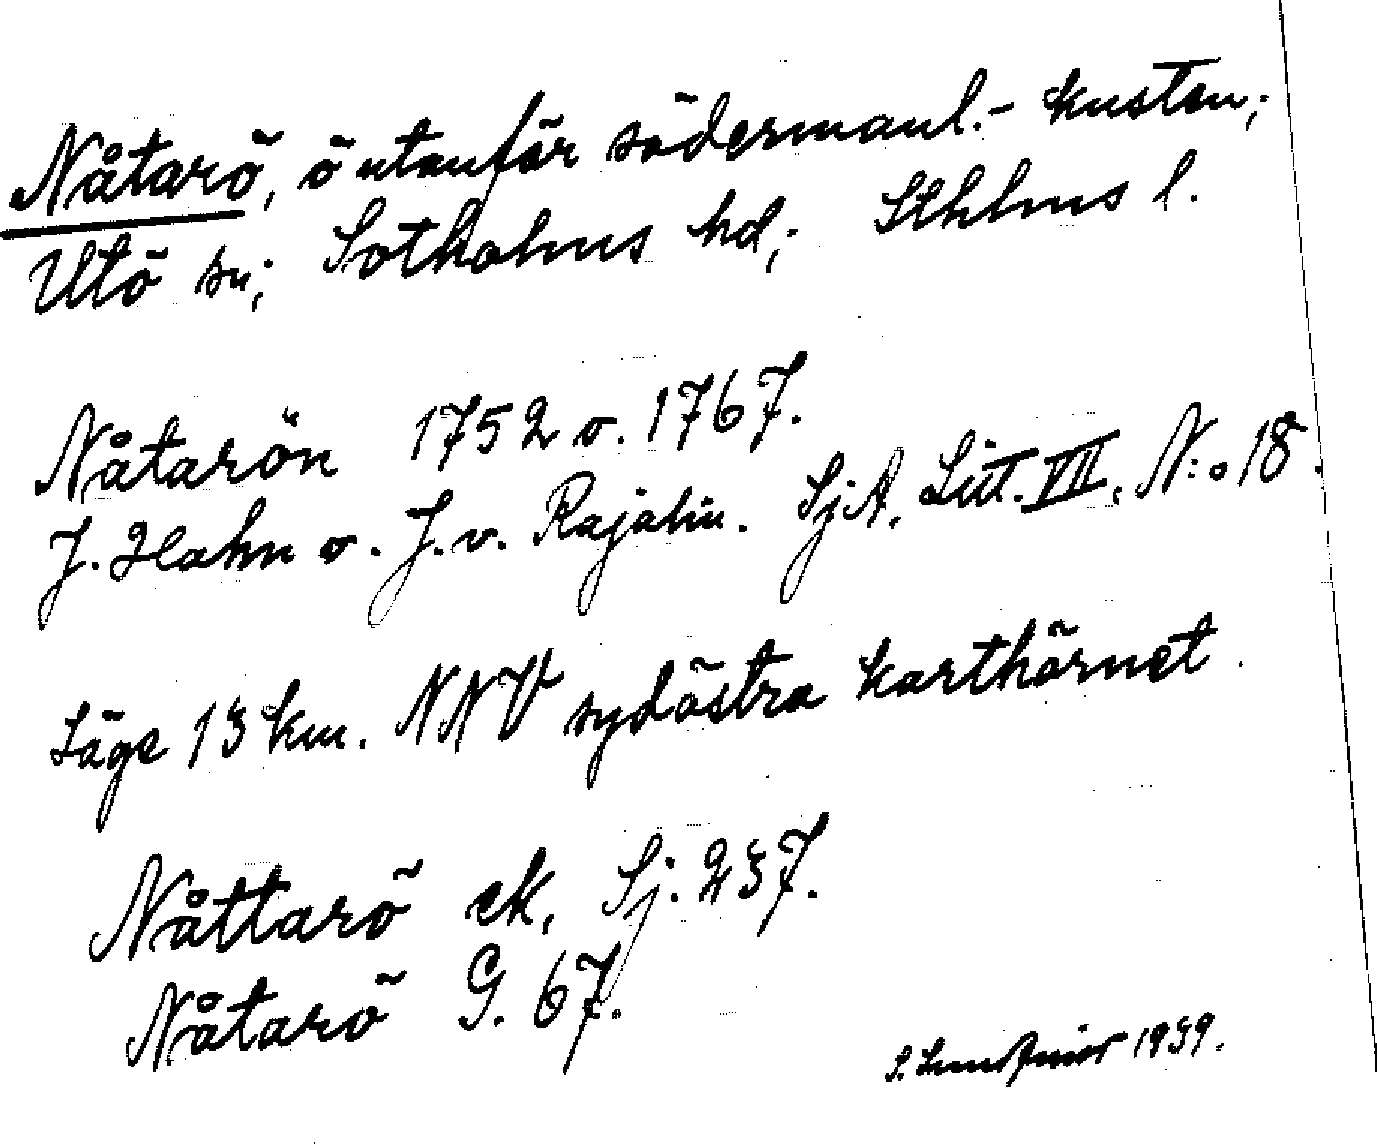 Nåtarö, ö utanför södermanl.- kusten;
Utö sn; Sotholms hd; Sthlms l.
Nåtarön 1752 o. 1767.
J. Hahn o. J. v. Rajalin. SjA. Litt. VII. N:o 18.
Läge 13 km. NNV sydöstra karthörnet.
Nåttarö ek. Sj. 237.
Nåtarö G. 67.
S. 1939.